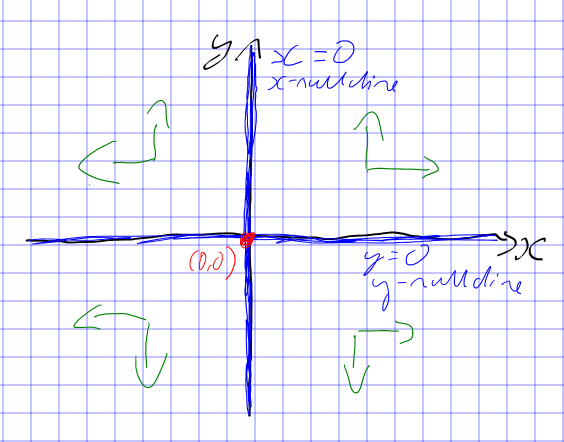 y
x=0
x-nullcline
x
(0,0)
y=0
y-nullcline